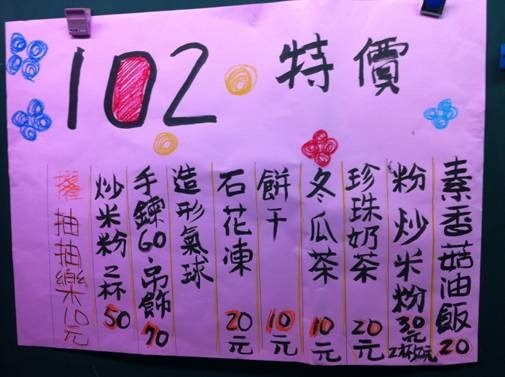 102 特價
素香菇油飯 20
粉炒米粉 30元 2杯50元
珍珠奶茶 20元
冬瓜茶 10元
餅干 10元
石花凍 20元
造形氣球
手鍊60.吊飾70
炒米粉2杯50
抽抽樂10元